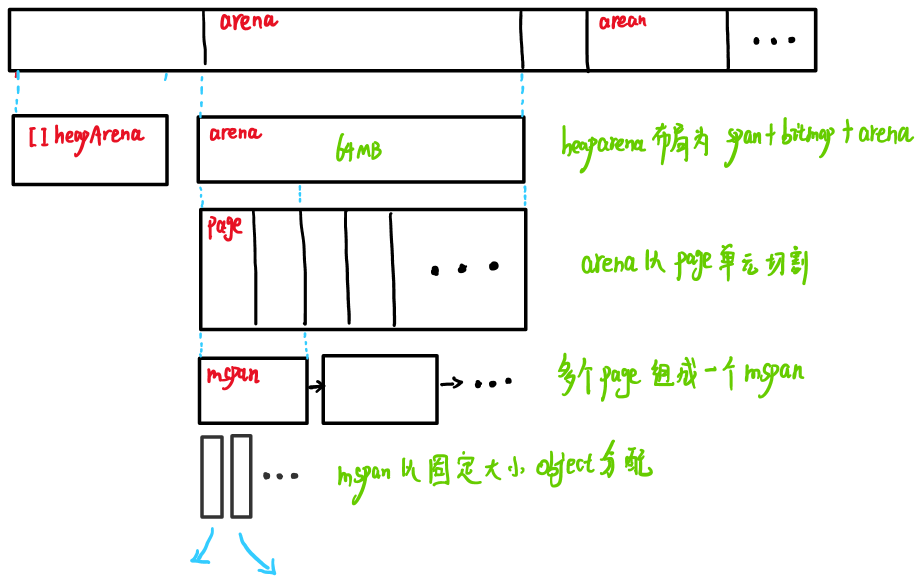 arena
arean
...
[]heapArena
arena
64MB
heaparena 布局为 span+bitmap+arena
page
...
arena 以 page 单元切割
mspan
...
多个 page 组成一个 mspan
...
mspan 以固定大小 object 分配